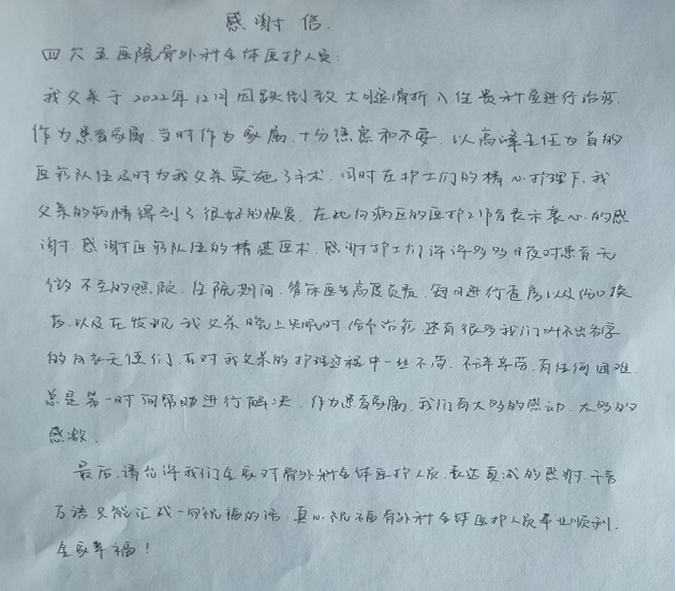 感谢信.
四六五医院骨外科全体医护人员:
我父亲于2022年12月因跌倒致大腿骨折入住贵科室进行治疗.
作为患者家属.当时作为家属.十分焦虑和不安.以高峰主任为首的
医疗队伍及时为我父亲实施了手术.同时在护士们的精心护理下.我
父亲的病情得到了很好的恢复.在此向病区的医护工作者表示衷心的感
谢.感谢医疗队伍的精湛医术.感谢护士们许许多多日夜对患者无
微不至的照顾.住院期间.管床医生高度负责.每日进行查房以及伤口换
药.以及在发现我父亲晚上失眠时.给予治疗.还有很多我们叫不出名字
的白衣天使们.在对我父亲的护理过程中一丝不苟.不辞辛劳.有任何困难.
总是第一时间帮助进行解决.作为患者家属.我们有太多的感动.太多的
感激.
最后.请允许我们全家对骨外科全体医护人员.表达真诚的感谢.千言
万语.只能汇成一句祝福的话.真心祝福骨外科全体医护人员事业顺利.
全家幸福!